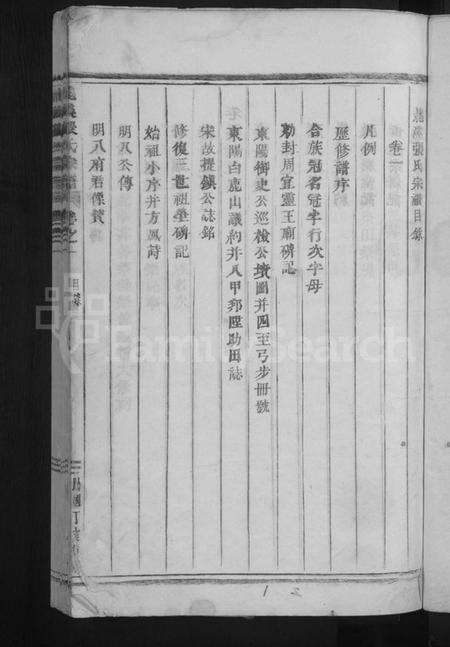 張氏宗譜目錄
卷一
凡例
歷修譜序
合族冠名冠字行次字母
勅封周宜靈王廟碑記
東陽御史公巡檢公墳圖并四至弓步冊號
東陽白鹿山議約并八甲郭陞助田誌
宋故提鎮公誌銘
修復三世祖塋碑記
始祖小序并方鳳詩
明八公傳
明八府君像贊
目錄
FamilySearch
1 2